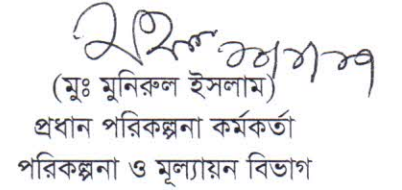 (মুঃ মুনিরুল ইসলাম)
প্রধান পরিকল্পনা কর্মকর্তা
পরিকল্পনা ও মূল্যায়ন বিভাগ